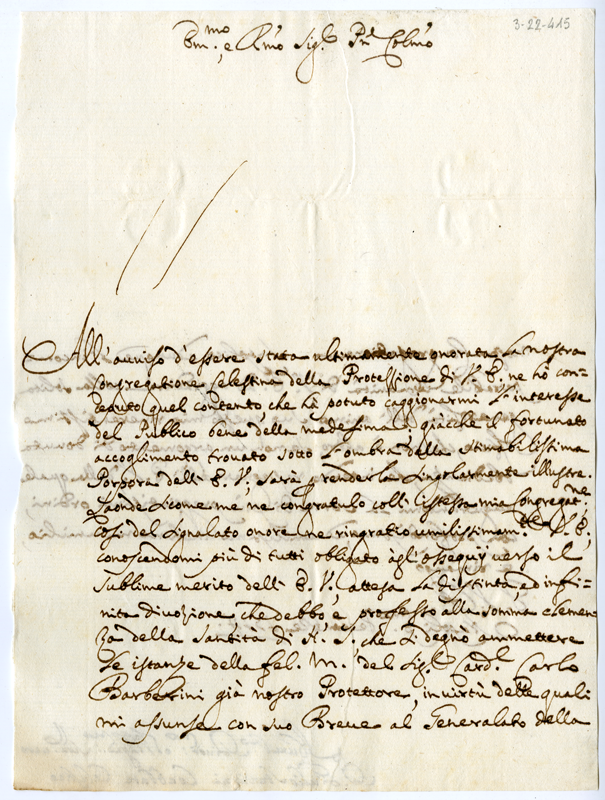 3-22-415
Em.mo e R.mo Sig.r P.ne Col.mo
All'auviso d'essere stata ultimamente onorata la nostra
Congregatione Celestina della Protessione di V. E. ne hò con-
ceputo quel contento, che hà potuto caggionarmi l'interesse
del Publico bene della medesima, giàcche il fortunato
accoglimento trouato sotto l'ombra della stimabilissima
Porpora dell' E. V., sarà p renderla singolarmente illustre.
Laonde sicome me ne congratulo coll' istessa mia Congregat.ne
così del segnalato onore ne ringratio umilissimam.te V. E.,
conoscendomi più di tutti obligato àgl'ossequij verso il
sublime merito dell' E. V., attesa la distinta, ed infi-
nita divozione, che debbo, e professo alla somma clemen-
za della Santità di N. S., che si degnò ammettere
le istanze della fel. M. del Sig.r Card.l Carlo
Barberini già nostro Protettore, in virtù delle quali
mi assunse con suo Breve al Generalato della